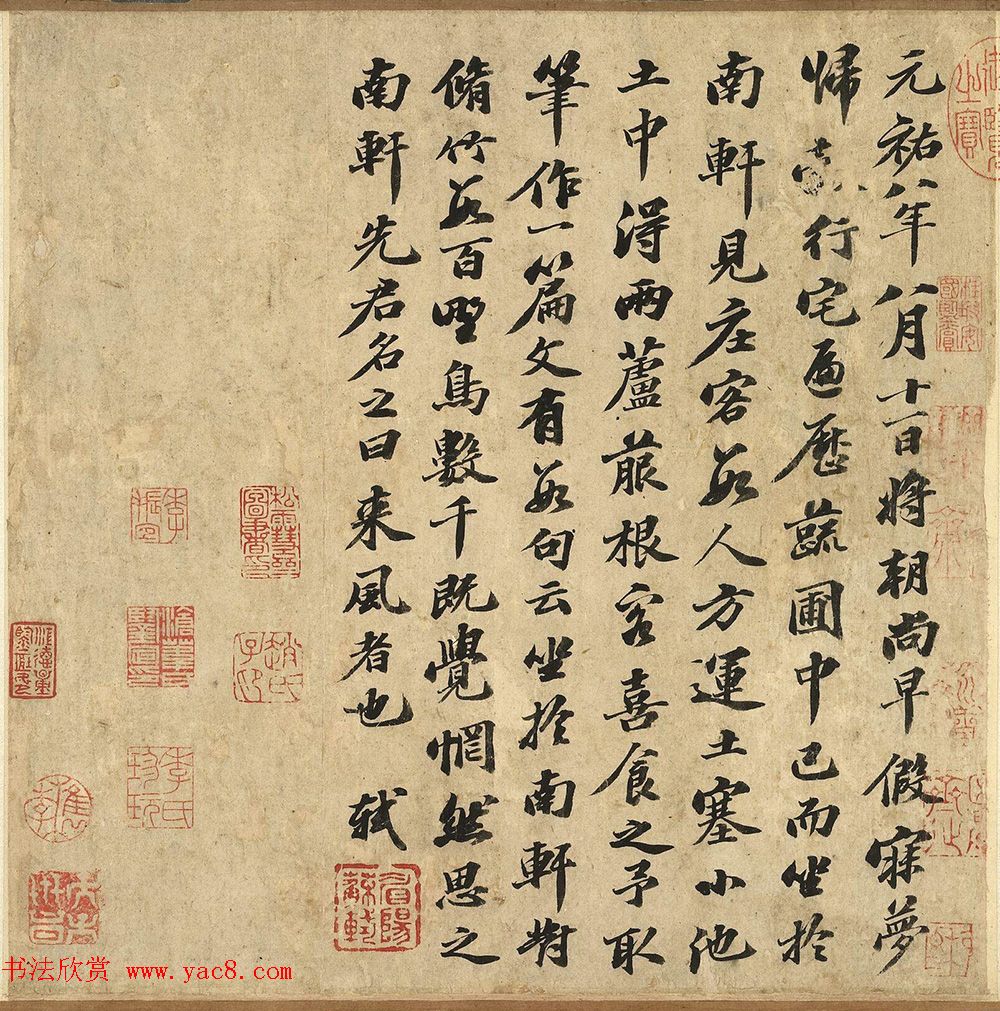 元祐八年八月十一日將朝尚早假寐夢
歸行宅遍歷蔬圃中已而坐於
南軒見庄客數人方運土塞小池
土中得兩蘆菔根客喜食之予取
筆作一篇文有數句云坐於南軒對
脩竹數百野鳥數千既覺惘然思之
南軒先君名之曰来風者也 軾
眉陽蘇軾
松雪齋圖書印
趙氏子昂
书法欣赏 www.yac8.com